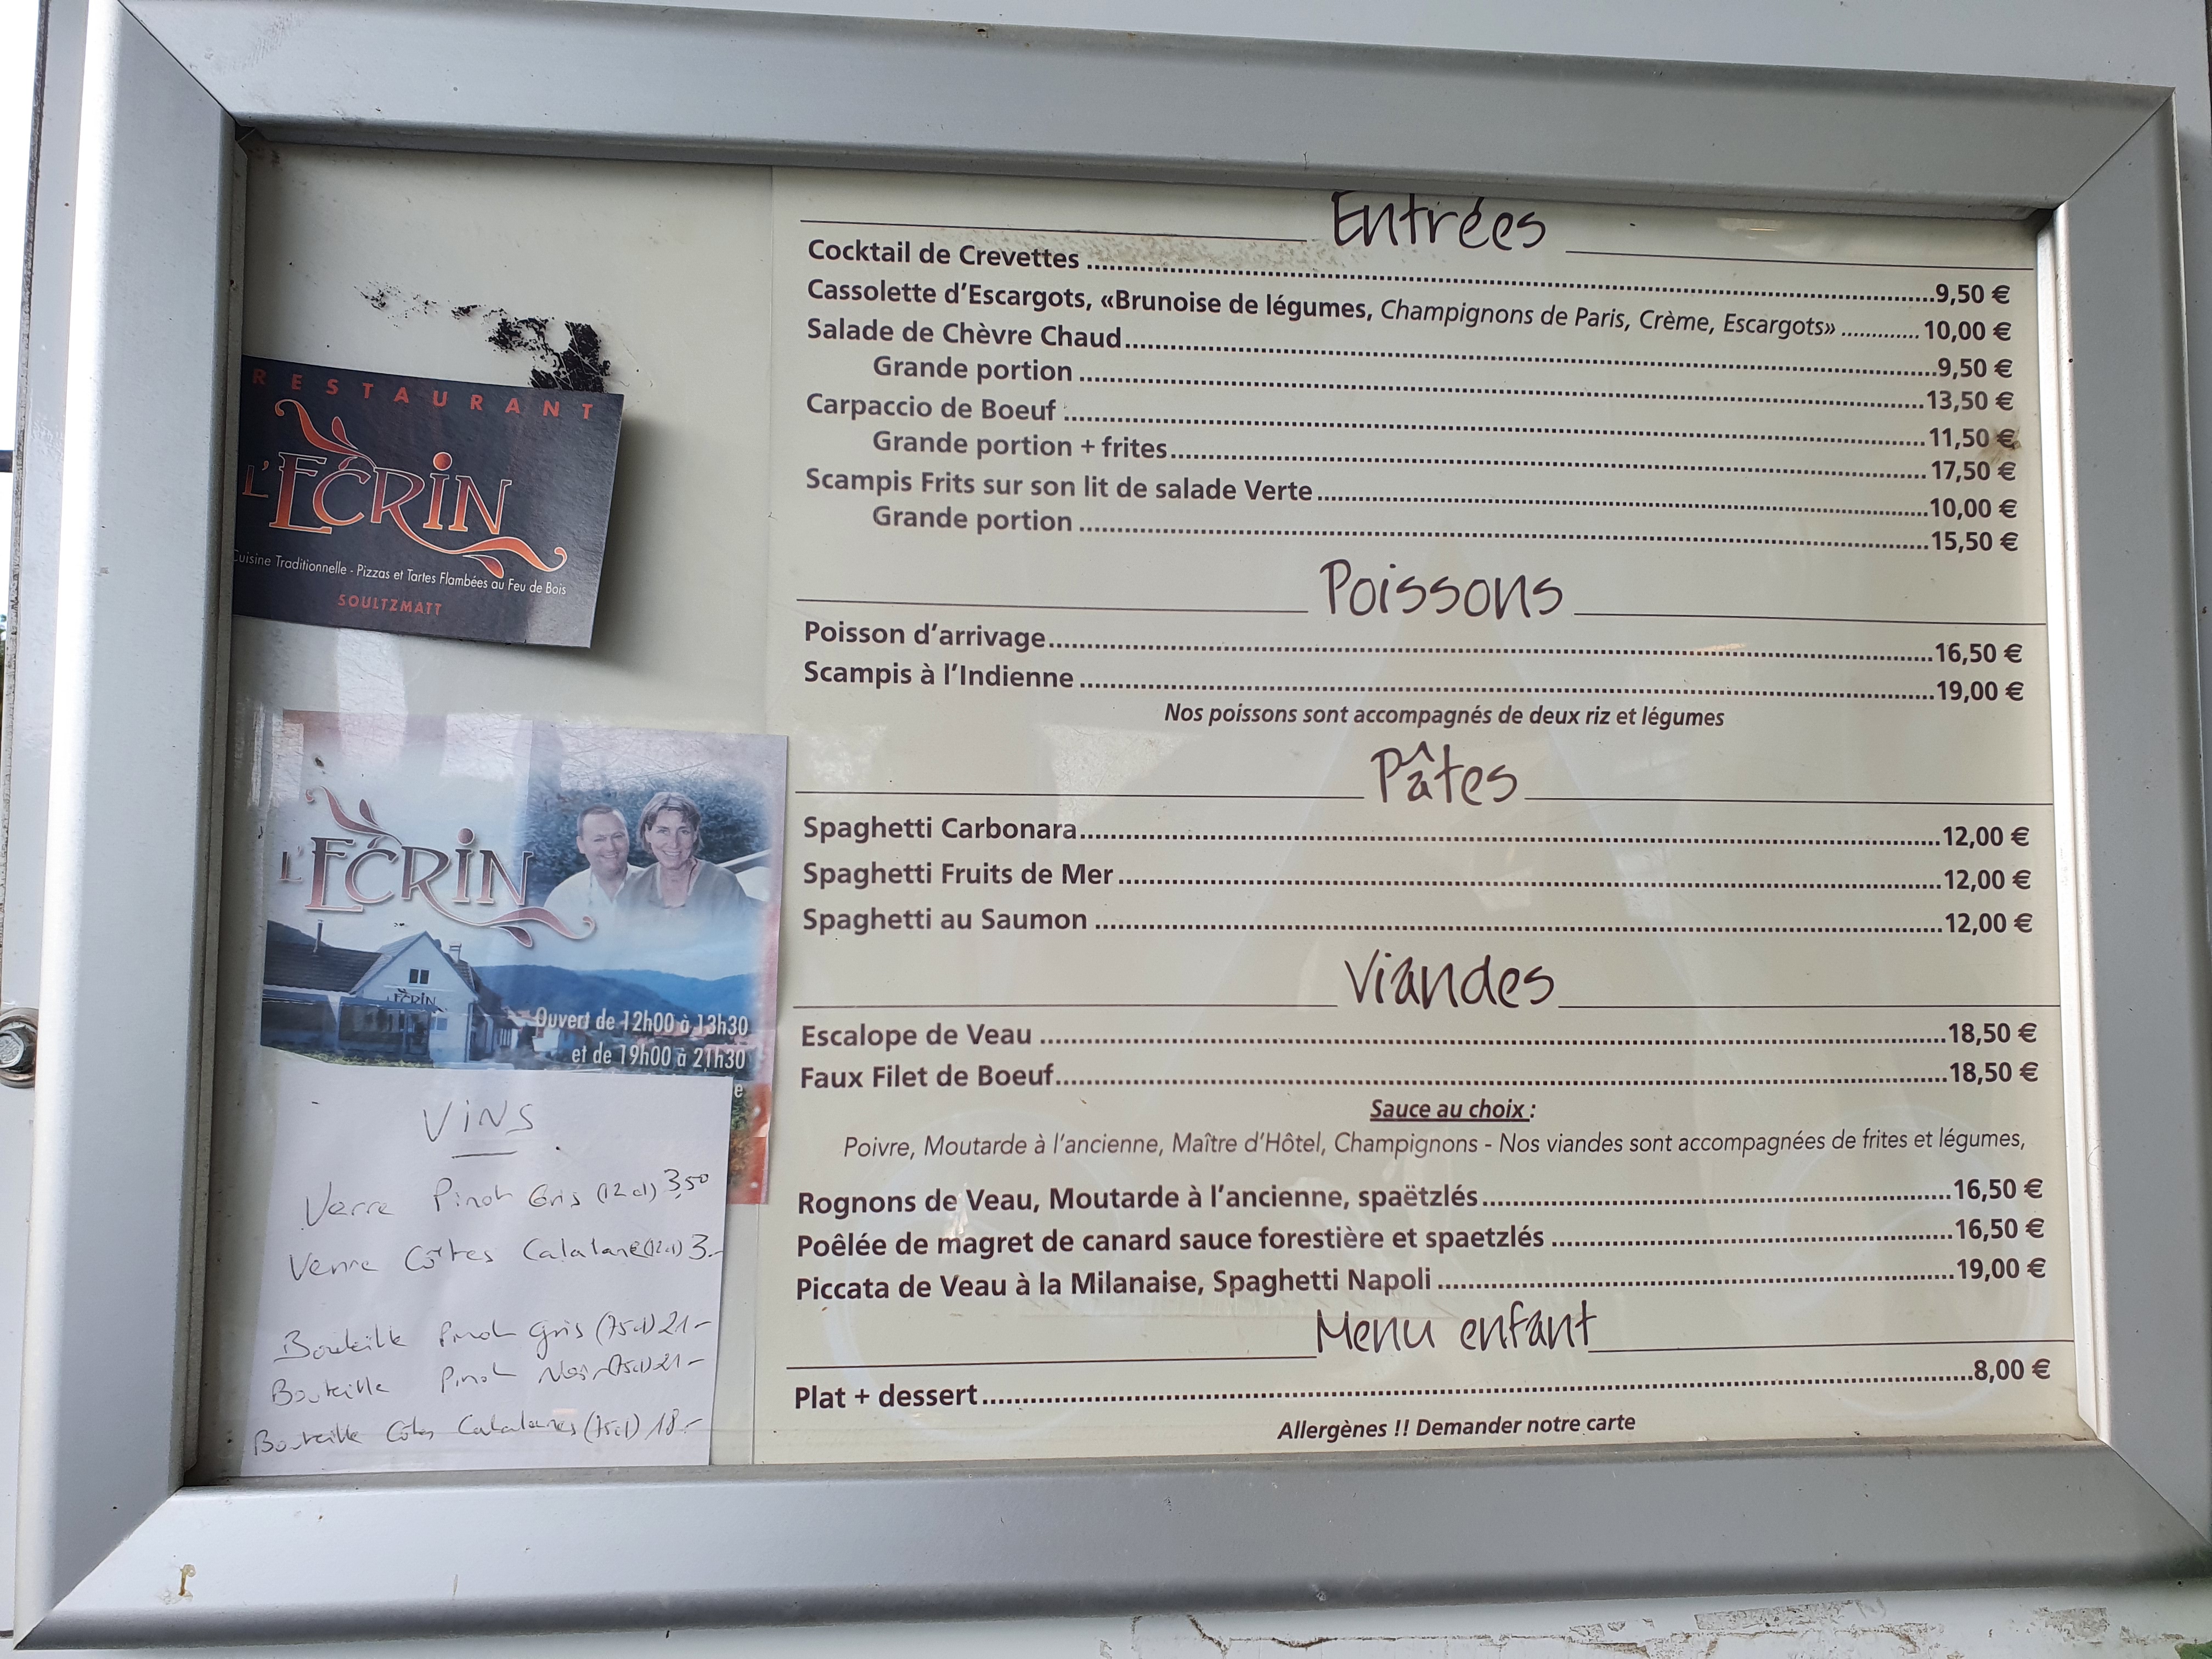 RESTAURANT
L'ECRIN
Cuisine Traditionnelle - Pizzas et Tartes Flambées au Feu de Bois
SOULTZMATT
L'ECRIN
L'ECRIN
Ouvert de 12h00 à 13h30
et de 19h00 à 21h30
e
VINS
Verre Pinot Gris (12 cl) 3,50
Verre Côtes Catalane (12cl) 3.-
Bouteille Pinot Gris (75cl) 21-
Bouteille Pinot Noir (75cl) 21-
Bouteille Côtes Catalanes (75cl) 18.-
Entrées
Cocktail de Crevettes ........ 9,50 €
Cassolette d'Escargots, «Brunoise de légumes, Champignons de Paris, Crème, Escargots» ........ 10,00 €
Salade de Chèvre Chaud ........ 9,50 €
Grande portion ........ 13,50 €
Carpaccio de Boeuf ........ 11,50 €
Grande portion + frites ........ 17,50 €
Scampis Frits sur son lit de salade Verte ........ 10,00 €
Grande portion ........ 15,50 €
Poissons
Poisson d'arrivage ........ 16,50 €
Scampis à l'Indienne ........ 19,00 €
Nos poissons sont accompagnés de deux riz et légumes
Pâtes
Spaghetti Carbonara ........ 12,00 €
Spaghetti Fruits de Mer ........ 12,00 €
Spaghetti au Saumon ........ 12,00 €
Viandes
Escalope de Veau ........ 18,50 €
Faux Filet de Boeuf ........ 18,50 €
Sauce au choix :
Poivre, Moutarde à l'ancienne, Maître d'Hôtel, Champignons - Nos viandes sont accompagnées de frites et légumes,
Rognons de Veau, Moutarde à l'ancienne, spaëtzlés ........ 16,50 €
Poêlée de magret de canard sauce forestière et spaetzlés ........ 16,50 €
Piccata de Veau à la Milanaise, Spaghetti Napoli ........ 19,00 €
Menu enfant
Plat + dessert ........ 8,00 €
Allergènes !! Demander notre carte